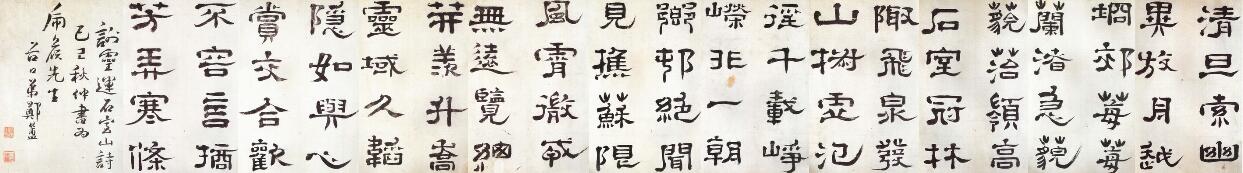 清旦索幽
異放舟越
坰郊莓莓
蘭渚急藐
藐菭嶺高
石室冠林
陬飛泉發
山椒虛氾
徑千載崢
嶸非一朝
鄉邨絕聞
見樵蘇限
風霄微戎
無遠覽總
笄羨升喬
靈域久韜
隱如與心
賞交合歡
不容言摛
芳弄寒條
謝靈運石室山詩
己巳秋仲書為
先生
谷口弟鄭簠